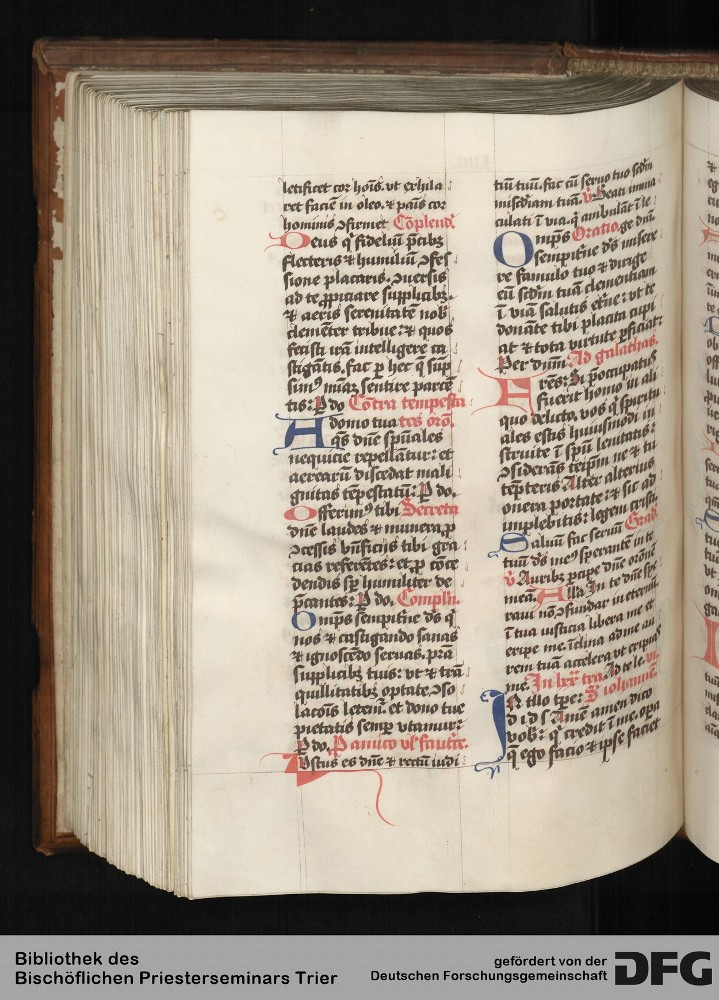 letificet cor hoīs. vt exhila
ret faciē in oleo. ⁊ pāis cor
hominis ꝯfirmet Cōplend.
Deus q̄ fideliū p̄cibꝫ
flecteris ⁊ humiliū ꝯfes
sione placaris. ꝯuersis
ad te ꝓpiciare supplicibꝫ.
⁊ aeris serenitatē nob̄
clemēter tribue: ⁊ quos
fecisti irā intelligere ca
stigātis. fac ꝑ hec q̄ sup̄
sim⁹ mīaꝫ sentire parcē
tis: P do Cōtra tempesta
A domo tua tes orō.
q̄s dn̄e sp̄uales
nequicie repellātur: et
aerearū discedat mali
gnitas tēpestatū: P do.
Offerim⁹ tibi Secreta
dn̄e laudes ⁊ munera ꝓ
ꝯcessis bn̄ficijs tibi gra
cias referētes: et ꝓ cōce
dendis sp̄ humiliter de
p̄cantes: P do. Compln̄.
Omp̄s sempit̄ne ds̄ q̄
nos ⁊ castigando sanas
⁊ ignoscēdo seruas. p̄ra
supplicibꝫ tuis: vt ⁊ trā
quillitatibꝫ optate ꝯso
lacōis letem̄. et dono tue
pietatis semꝑ vtamur:
P do. P amico vl̄ fautore.
Iustus es dn̄e ⁊ rectū iudi
tiū tuū. fac cū seruo tuo scdm̄
misc̄diam tuā. v̄ Beati inma
culati ī via. q̄ ambulāt ī le
Omp̄s Oratio. ge dn̄i.
sempit̄ne ds̄ misere
re famulo tuo ⁊ dirige
eū scdm̄ tuā clementiam
ī viā salutis et̄ne: vt te
donāte tibi placita cupi
at ⁊ tota virtute ꝑficiat:
Per dn̄m: Ad galathas.
Fres: Si p̄occupatus
fuerit homo in ali
quo delicto. vos q̄ spiritu
ales estis huiusmodi in
struite ī sp̄u lenitatis:
ꝯsiderās teip̄m ne ⁊ tu
tēpteris. Alter alterius
onera portate: ⁊ sic ad
implebitis: legem cristi.
Saluū fac seruū Grad.
tuū ds̄ me⁹ sperantē in te
v̄ Aurib⁹ ꝑcipe dn̄e oronē
meā. Alla In te dn̄e spe
raui nō ꝯfundar in eternū.
ī tua iusticia libera me et
eripe me. Iclina ad me au
rem tuā accelera vt eripias
me. In lxx tra. Ad te le. vi.
In illo tp̄e: S iohannē.
d i d s Amē amen dico
vob̄: q̄ credit ī me. opa
q̄ ego facio ⁊ ipse faciet
Bibliothek des
Bischöflichen Priesterseminars Trier
gefördert von der
Deutschen Forschungsgemeinschaft
DFG